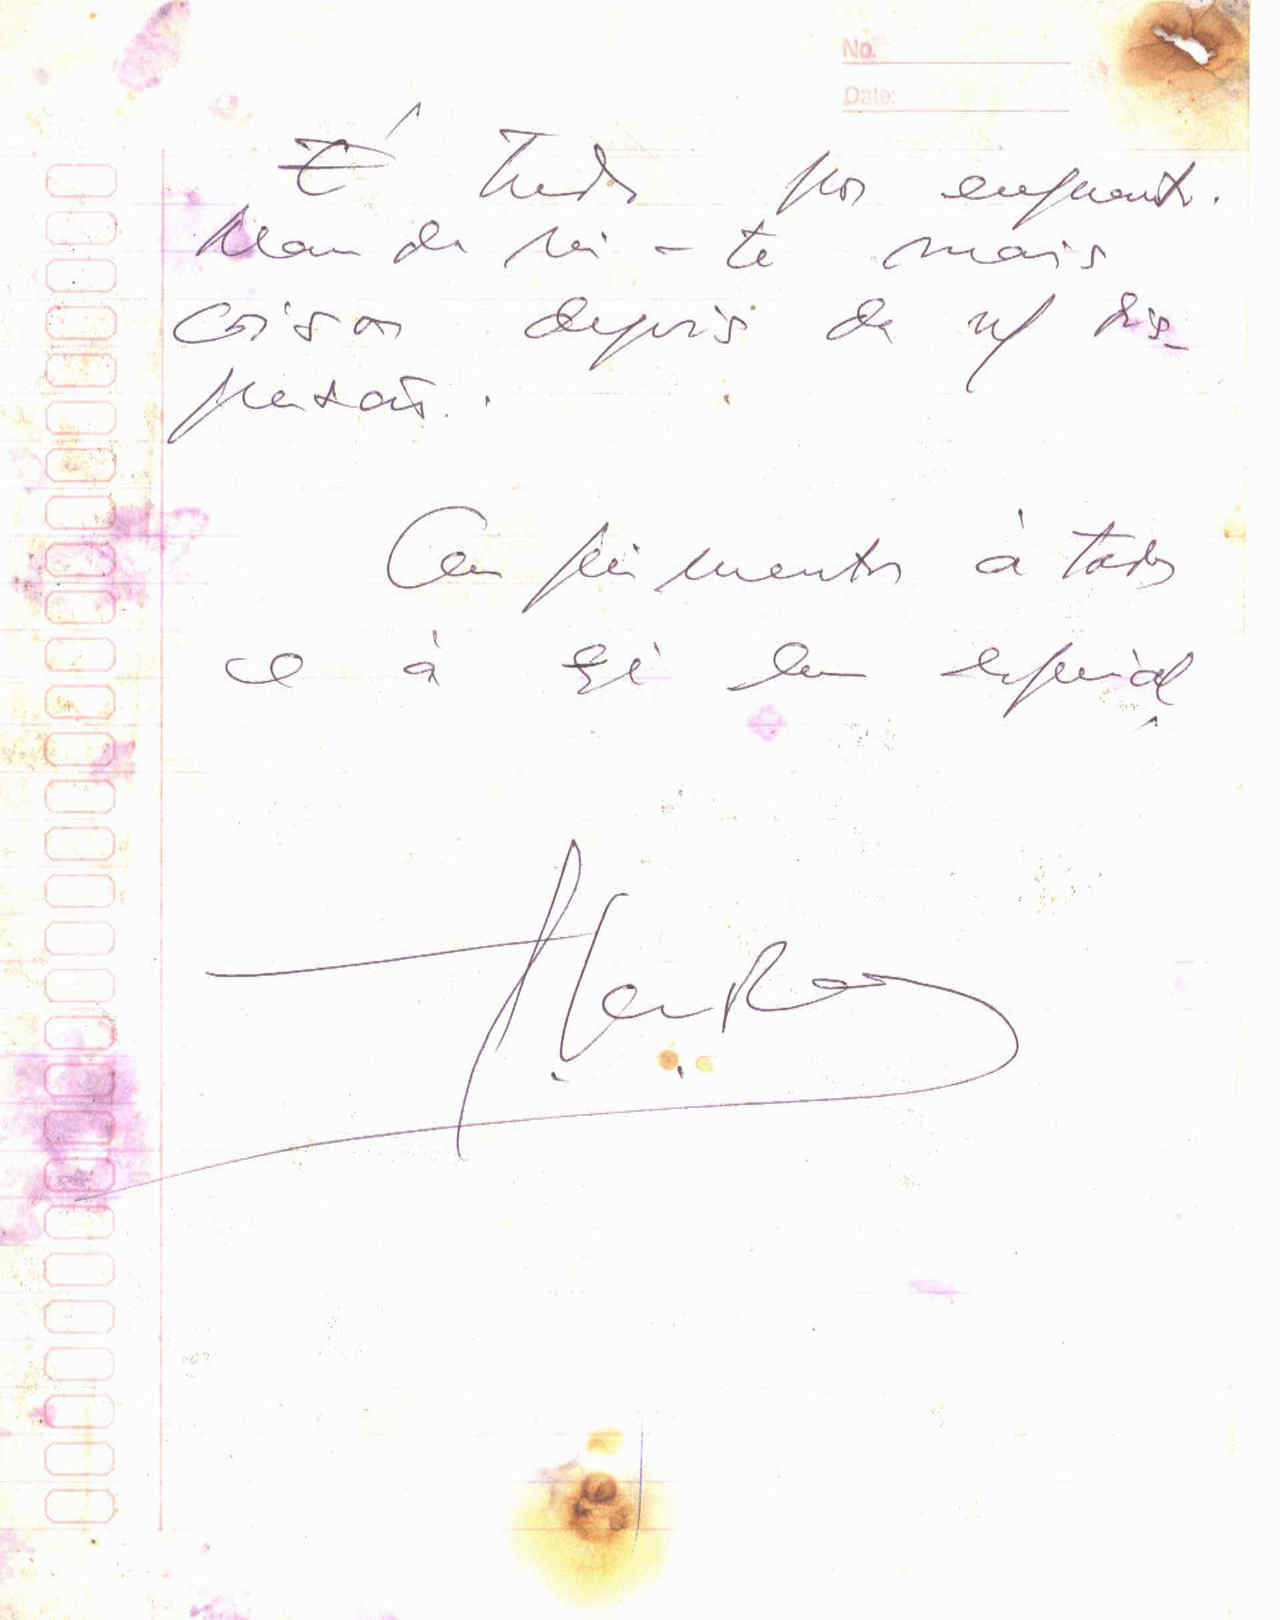 No.
Date:
É tudo por enquanto.
Mandarei-te mais
coisas depois da s/ dis-
persão.
Cumprimentos à todos
e à Gi em especial